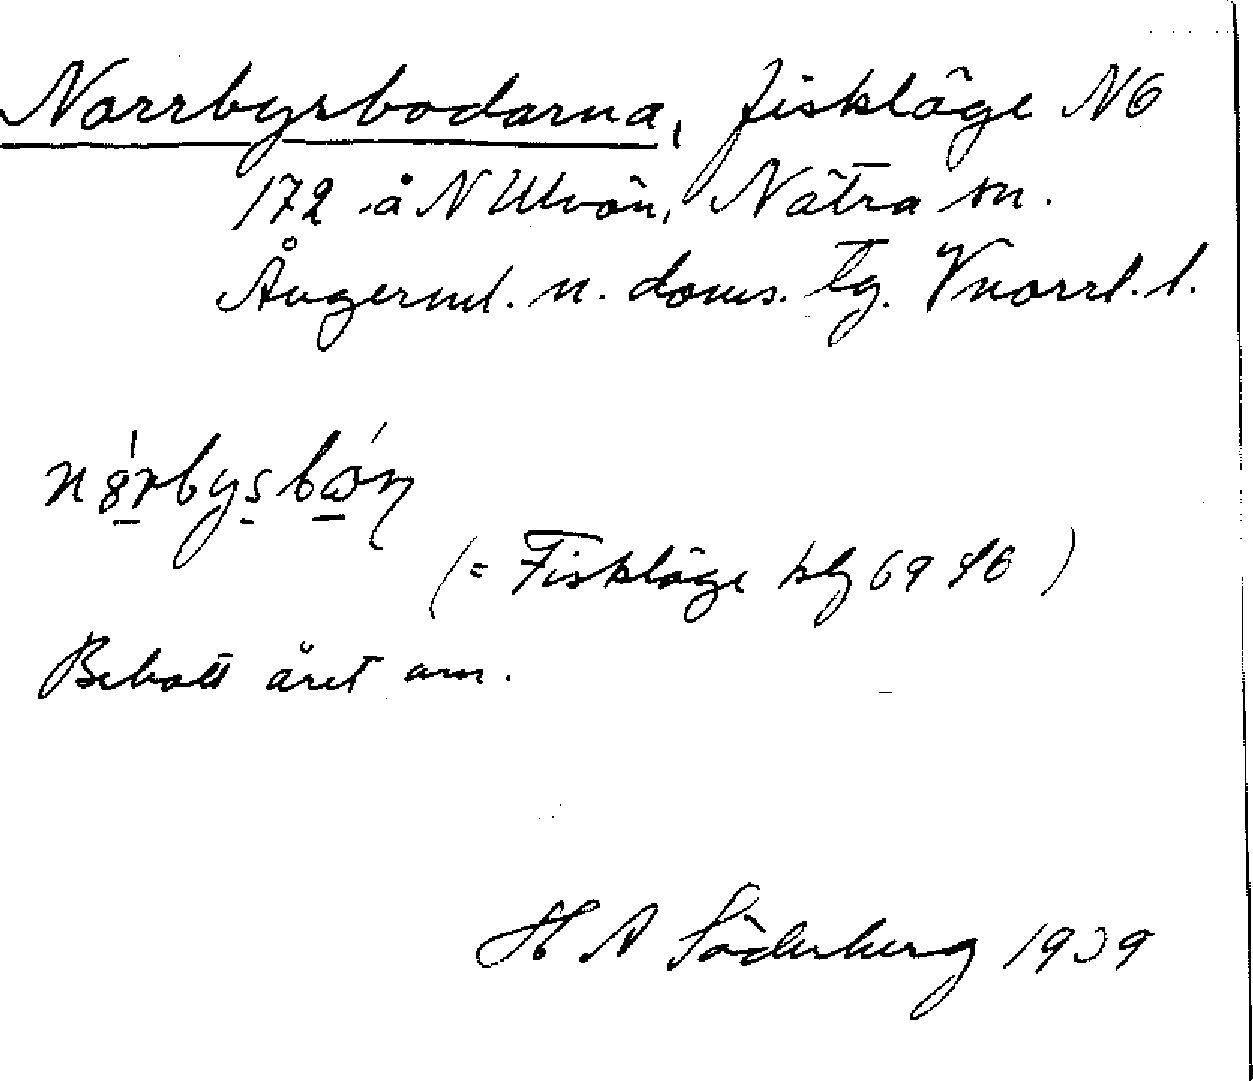 Norrbysbodarna, fiskläge NG
172 å N Ulvön, Nätra sn.
Ångerml. n. doms. tg. Vnorrl. l.
(= Fiskläge
Bebott året om.
H A Söderberg 1939